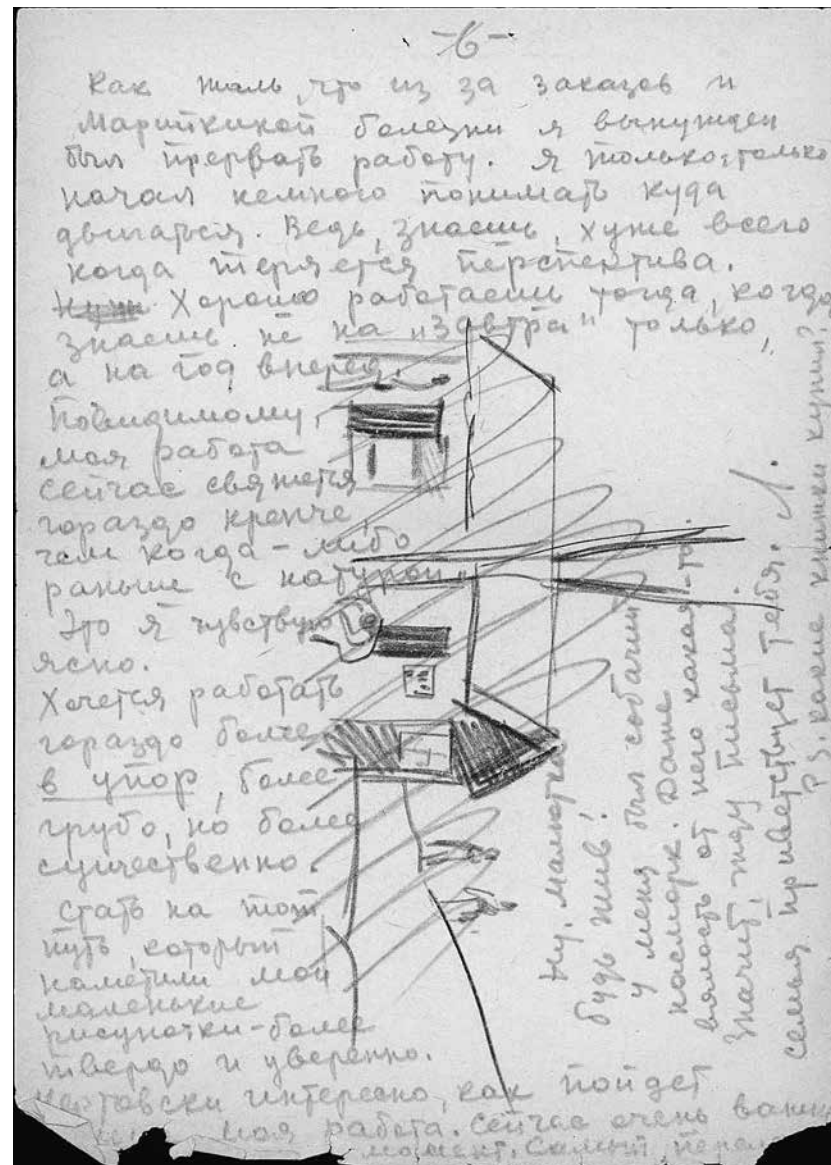 -6-
Как жаль, что из за заказов и
Марийкиной болезни я вынужден
был прервать работу. Я только, только
начал немного понимать куда
двигаться. Ведь, знаешь, хуже всего
когда теряется перспектива.
Хорошо работаешь тогда, когда
знаешь не на „завтра" только,
а на год вперед.
Повидимому,
моя работа
сейчас свяжется
гораздо крепче,
чем когда-либо
раньше с натурой.
Это я чувствую
ясно.
Хочется работать
гораздо более
в упор, более
грубо, но более
существенно.
Стать на тот
путь, который
наметили мои
маленькие
рисуночки - более
твердо и уверенно.
Чертовски интересно, как пойдет
моя работа. Сейчас очень
момент. Самый
Ну, малютка
будь жив!
У меня был собачий
насморк. Даже
вялость от него какая-то.
Значит, жду письма.
Семья приветствует тебя. Л.
P.S. какие книжки купил?